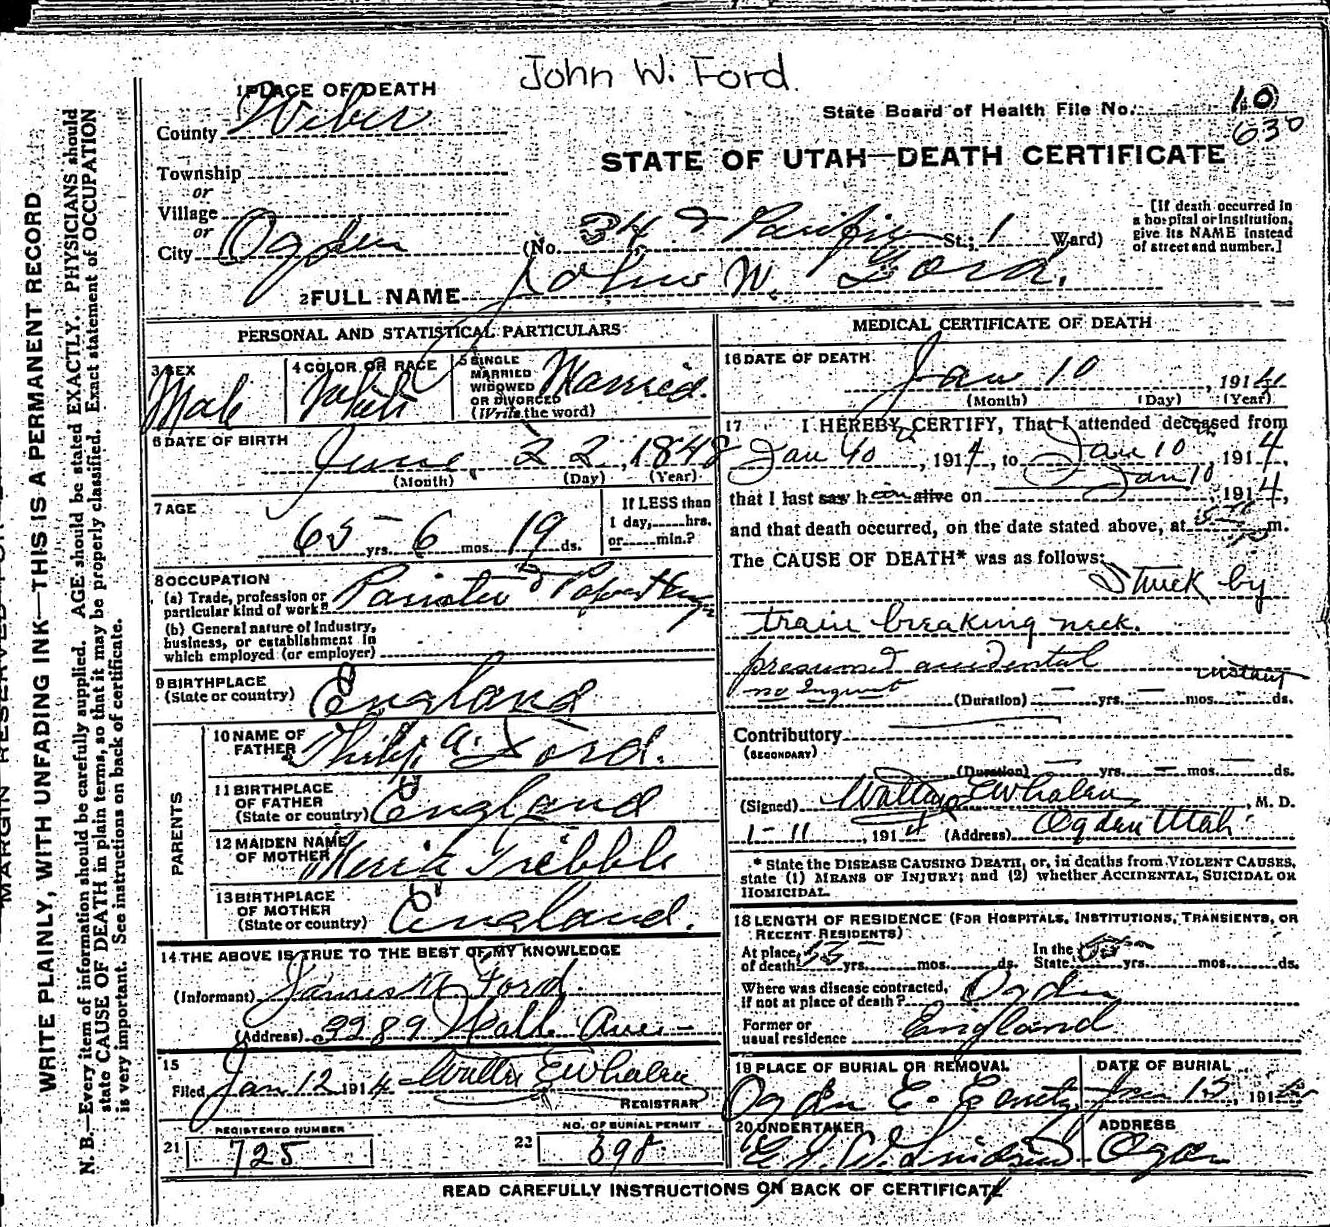 John W. Ford.
1 PLACE OF DEATH
County Weber
State Board of Health File No. 10
630
STATE OF UTAH—DEATH CERTIFICATE
Township
or
Village
or
City Ogden (No. 34 & Pacific St.; 1 Ward)
[If death occurred in a hospital or institution, give its NAME instead of street and number.]
2 FULL NAME John W. Ford.
PERSONAL AND STATISTICAL PARTICULARS
3 SEX Male
4 COLOR OR RACE White
5 SINGLE MARRIED WIDOWED OR DIVORCED (Write the word) Married.
6 DATE OF BIRTH June 22, 1848
(Month) (Day) (Year)
7 AGE 65 yrs. 6 mos. 19 ds.
If LESS than 1 day, hrs. or min.?
8 OCCUPATION
(a) Trade, profession or particular kind of work Painter & Paper
(b) General nature of Industry, business, or establishment in which employed (or employer)
9 BIRTHPLACE (State or country) England
PARENTS
10 NAME OF FATHER Philip A. Ford.
11 BIRTHPLACE OF FATHER (State or country) England
12 MAIDEN NAME OF MOTHER Tribble
13 BIRTHPLACE OF MOTHER (State or country) England.
14 THE ABOVE IS TRUE TO THE BEST OF MY KNOWLEDGE
(Informant) James Ford.
(Address) 3289 Wall Ave
15
Filed Jan 12 1914 Walter E Whalen
REGISTRAR
21 REGISTERED NUMBER 725
22 NO. OF BURIAL PERMIT 698
MEDICAL CERTIFICATE OF DEATH
16 DATE OF DEATH Jan 10, 1914
(Month) (Day) (Year)
17 I HEREBY CERTIFY, That I attended deceased from
Jan 10, 1914, to Jan 10 1914,
that I last saw h alive on Jan 10 1914,
and that death occurred, on the date stated above, at m.
The CAUSE OF DEATH* was as follows:
Struck by
train breaking neck.
presumed accidental
no Inquest instant
(Duration) yrs. mos. ds.
Contributory
(SECONDARY)
(Duration) yrs. mos. ds.
(Signed) Walter E Whalen, M. D.
1-11, 1914 (Address) Ogden Utah.
* State the DISEASE CAUSING DEATH, or, in deaths from VIOLENT CAUSES,
state (1) MEANS OF INJURY; and (2) whether ACCIDENTAL, SUICIDAL OR
HOMICIDAL.
18 LENGTH OF RESIDENCE (FOR HOSPITALS, INSTITUTIONS, TRANSIENTS, OR
RECENT RESIDENTS)
At place of death yrs. mos. ds. In the State yrs. mos. ds.
Where was disease contracted, if not at place of death? Ogden
Former or usual residence England
19 PLACE OF BURIAL OR REMOVAL
Ogden C. Cemetery
DATE OF BURIAL
Jan 1914
20 UNDERTAKER
ADDRESS
Ogden
READ CAREFULLY INSTRUCTIONS ON BACK OF CERTIFICATE
WRITE PLAINLY, WITH UNFADING INK—THIS IS A PERMANENT RECORD
N. B.—Every item of information should be carefully supplied. AGE should be stated EXACTLY. PHYSICIANS should
state CAUSE OF DEATH in plain terms, so that it may be properly classified. Exact statement of OCCUPATION
is very important. See instructions on back of certificate.